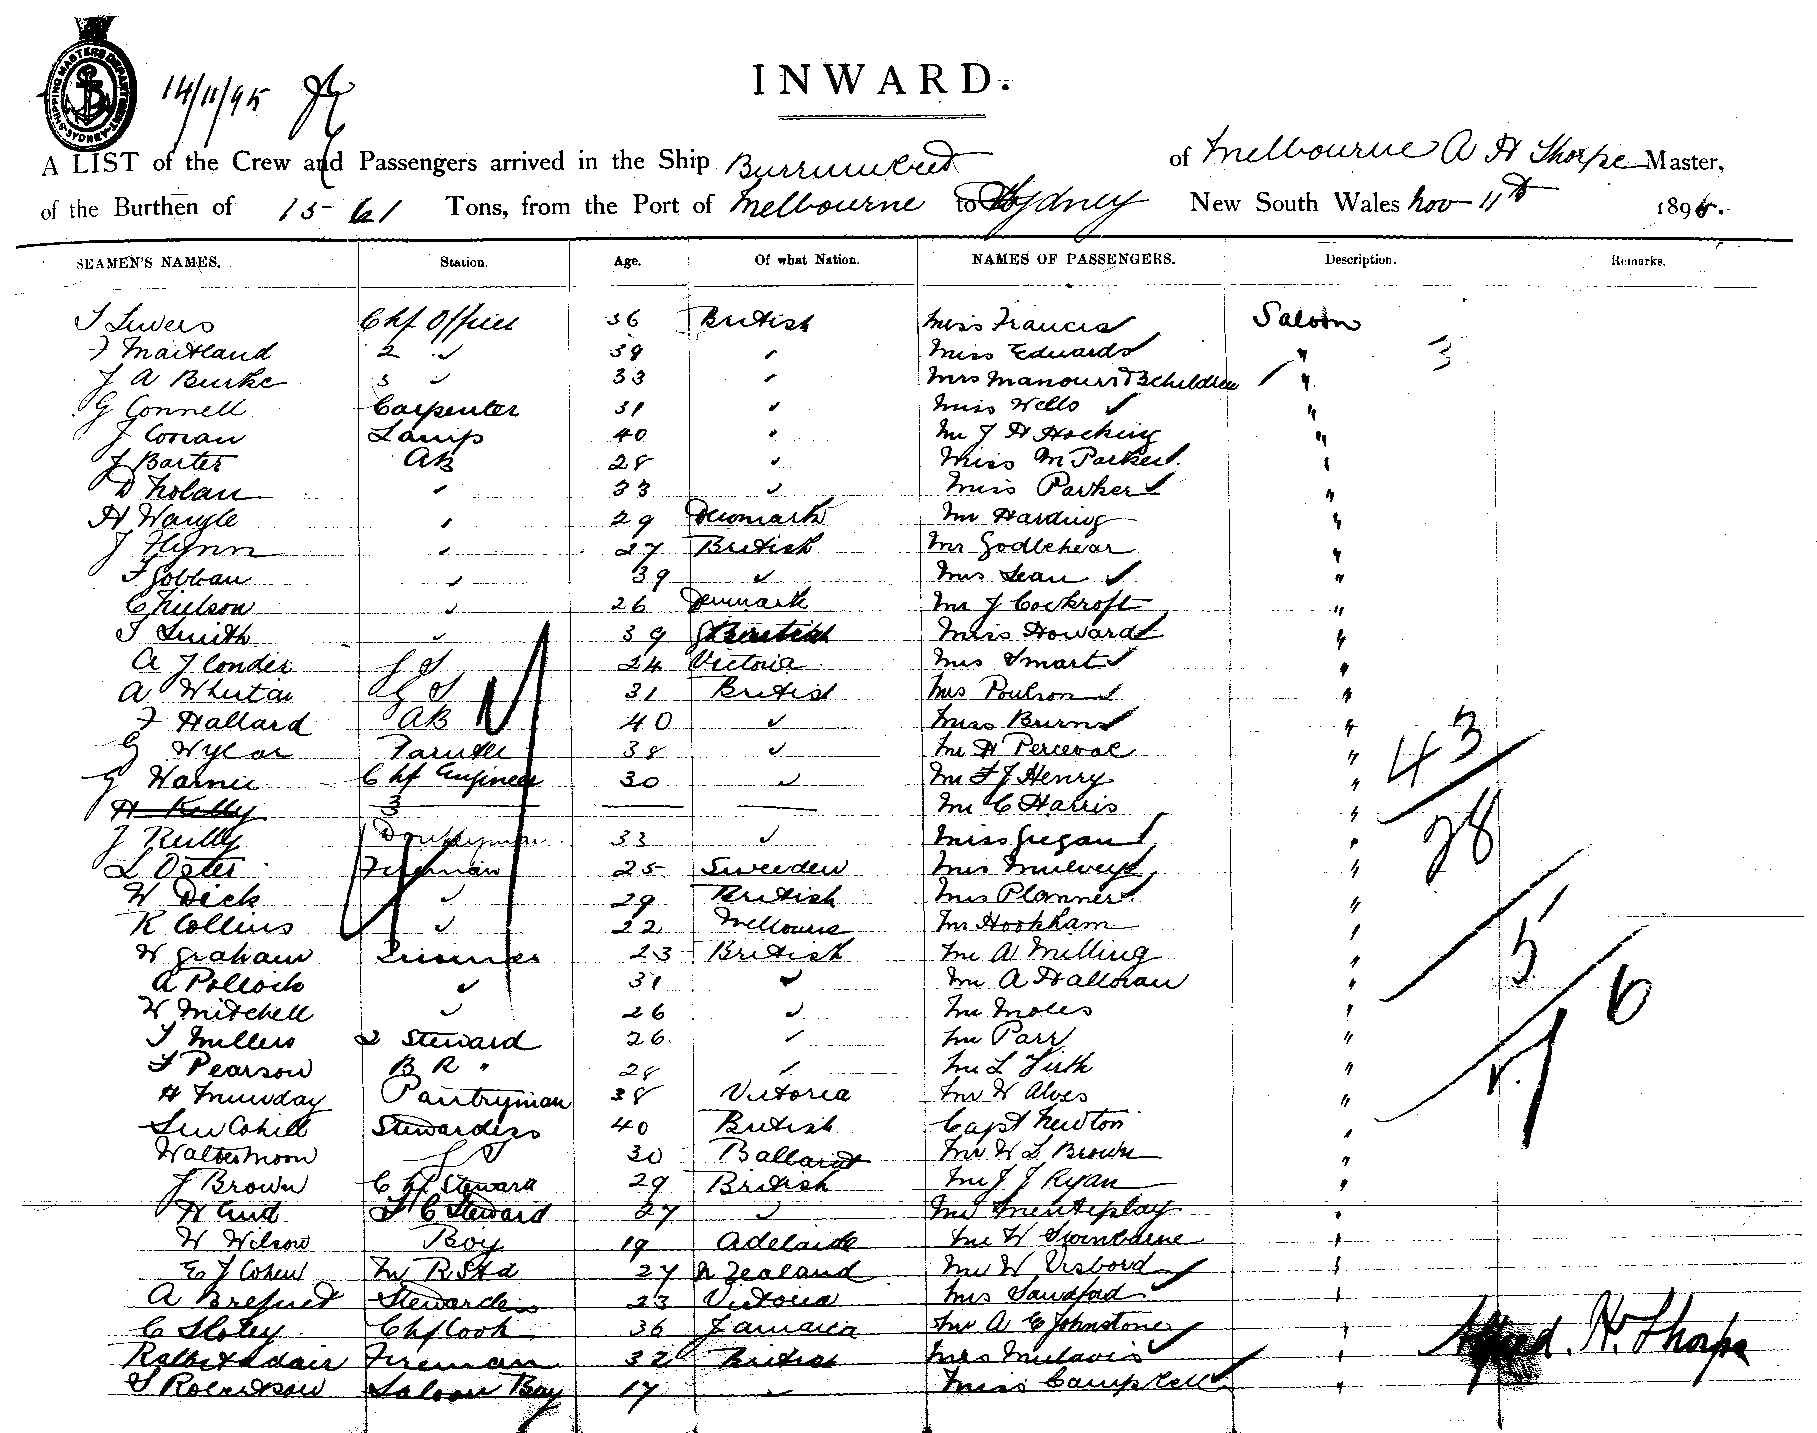 SHIPPING MASTERS DEPARTMENT SYDNEY
14/11/95
INWARD.
A LIST of the Crew and Passengers arrived in the Ship Burrumbeet of Melbourne A H Thorpe Master,
of the Burthen of 1561 Tons, from the Port of Melbourne to Sydney New South Wales Nov 11th 1895.
SEAMEN'S NAMES. Station. Age. Of what Nation. NAMES OF PASSENGERS. Description. Remarks.
Chf Officer 36 British Miss Francis Saloon
Maitland 2 " 39 " Miss Edwards " 3
J A Burke 3 " 33 " Mrs Manours & 3 children "
G Connell Carpenter 31 " Miss Wells "
J Conan Lamps 40 " Mr J H Hocking "
J Barter AB 28 " Miss M Parker "
D Nolan " 33 " Miss Parker "
H " 29 Denmark Mr Harding "
J Flynn " 27 British Mr "
" 39 " Mrs Lean "
C Nielson " 26 Denmark Mr J Cockroft "
T Smith " 39 British Miss Howard "
A J Conder 24 Victoria Mrs Smart "
A 31 British Mrs Poulson "
F Hallard AB 40 " Miss Burns "
G 38 " Mr H Perceval " 43
G Chf Engineer 30 " Mr F J Henry "
H Kelly 3 Mr C Harris "
J Reilly Donkeyman 33 " Miss Gregan " 28
L Fireman 25 Sweden Mrs "
W Dick " 29 British Mrs "
R Collins " 22 Melbourne Mr Hookham "
W Graham Trimmer 23 British Mr A Milling " 5
A Pollock " 31 " Mr A Halloran " 6
W Mitchell " 26 " Mr Moles "
T Millers 2 Steward 26 " Mr Parr "
T Pearson B R " 28 " Mr L Firth "
H Pantryman 38 Victoria Mr W Alves "
Cahill Stewardess 40 British Capt Newton "
Walter Moon 30 Ballarat Mr W L Brown "
J Brown Chf Steward 29 British Mr J J Ryan "
H Steward 27 " Mr "
W Wilson Boy 19 Adelaide Mr W Swinburne "
E J Cohen 27 N Zealand Mr W "
A Stewardess 23 Victoria Mrs Sandford "
C Chf Cook 36 Jamaica Mr A E Johnstone " Alfred. H. Thorpe
Adair Fireman 32 British Mrs "
Robertson Saloon Boy 17 " Miss Campbell "